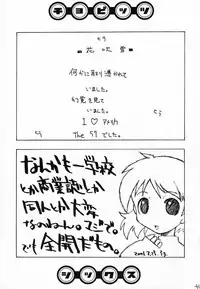 チョビッツ
59
花吹雪
何かに取り憑かれて
いました。
幻覚を見て
いました。
I ♡ アメリカ
The 59 でした。
なんかも一学校
とか商業誌とか
同人とか大変
なのねん。マジで。
でも全開だもの。
シックス